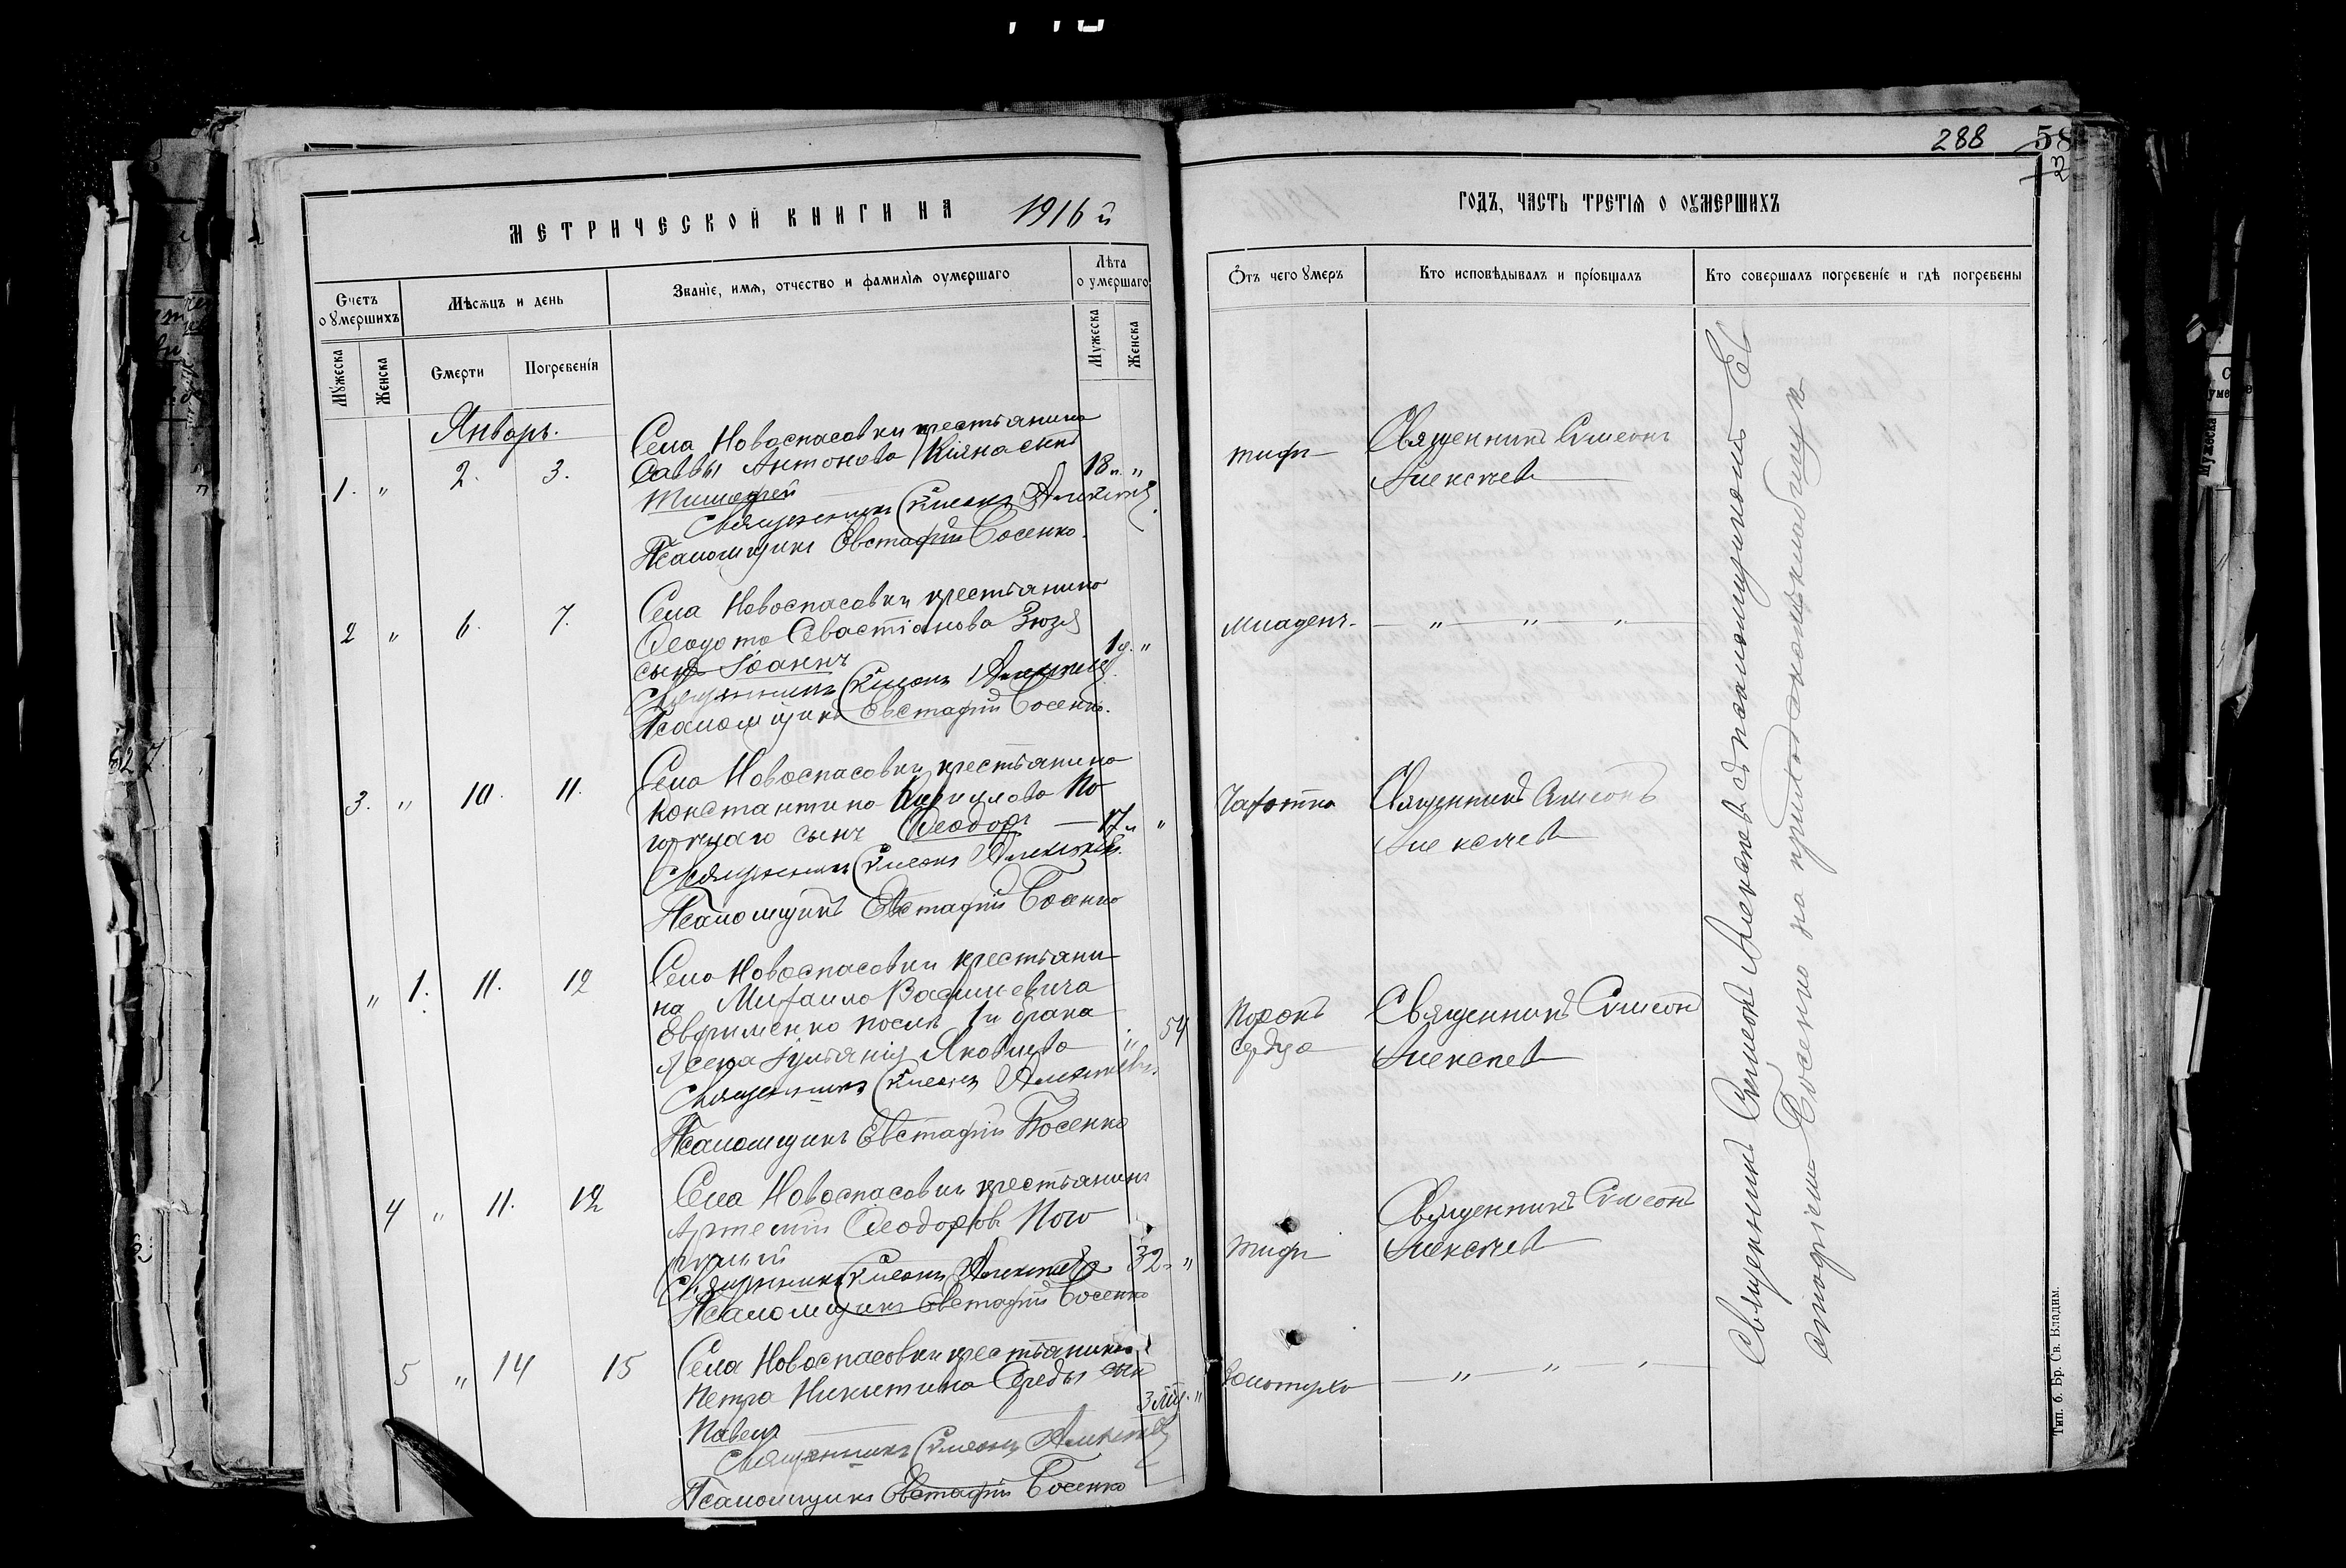 288 58
23
МЕТРИЧЕСКОЙ КНИГИ НА 1916 й
ГОДЪ, ЧАСТЬ ТРЕТІЯ О ОУМЕРШИХЪ
Счетъ оумершихъ
Мѣсяцъ и день
Званіе, имя, отчество и фамилія оумершаго
Лѣта оумершаго
Мужеска
Женска
Смерти
Погребенія
Мужеска
Женска
Отъ чего умеръ
Кто исповѣдывалъ и пріобщалъ
Кто совершалъ погребеніе и гдѣ погребены
Январь.
1. " 2. 3.
Села Новоспасовки крестьянина
Саввы Антонова Кіяна сынъ
Тимофей
18 "
Священникъ Симеонъ Алексѣевъ
Псаломщикъ Евстафій Босенко.
тифъ
Священникъ Симеонъ
Алексѣевъ
2 " 6. 7.
Села Новоспасовки крестьянина
Феодота Севастіанова Зюзя
сынъ Іоаннъ
1 г. "
Священникъ Симеонъ Алексѣевъ
Псаломщикъ Евстафій Босенко.
Младенч.
" " "
3. " 10. 11.
Села Новоспасовки крестьянина
Константина По
сынъ Феодоръ 17 "
Священникъ Симеонъ Алексѣевъ.
Псаломщикъ Евстафій Босенко
Чахотка
Священникъ Симеонъ
Алексѣевъ
" 1. 11. 12
Села Новоспасовки крестьяни
на Михаила Васильевича
Евфименко послѣ 1го брака
жена Іуліанія Яковлева " 54
Священникъ Симеонъ Алексѣевъ.
Псаломщикъ Евстафій Босенко
Порокъ
сердца
Священникъ Симеонъ
Алексѣевъ
4 " 11. 12
Села Новоспасовки крестьянинъ
Артемій Феодоровъ Пого
32 "
Священникъ Симеонъ Алексѣевъ
Псаломщикъ Евстафій Босенко
тифъ
Священникъ Симеонъ
Алексѣевъ
5 " 14 15
Села Новоспасовки крестьянина
Петра Никитина Середы сынъ
Павелъ
3 "
Священникъ Симеонъ Алексѣевъ
Псаломщикъ Евстафій Босенко
Золотуха
" " "
Священникъ Симеонъ Алексѣевъ съ псаломщикомъ Ев
стафіемъ Босенко на приходскомъ кладбищѣ
Тип. б. Бр. Св. Владим.